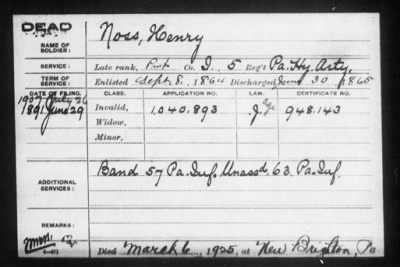 DEAD
NAME OF SOLDIER: Noss, Henry
SERVICE: Late rank, Pvt Co. I, 5 Reg't Pa. Hy. Arty.
TERM OF SERVICE: Enlisted Sept. 8, 1864 Discharged June 30 1865
DATE OF FILING. CLASS. APPLICATION NO. CERTIFICATE NO.
1907 July 26
1891 June 29 Invalid, 1,040,893 948,143
Widow,
Minor,
ADDITIONAL SERVICES: Band 57 Pa. Inf. Unassd, 63 Pa. Inf.
REMARKS:
Died March 6, 1925, at New Brighton, Pa.